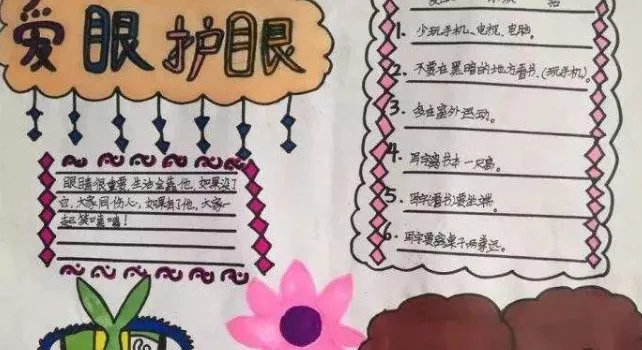 爱眼护眼
1. 少玩手机、电视、电脑。
2. 不要在黑暗的地方看书、(玩手机)。
3. 多在室外运动。
4. 写字离书本一尺高。
5. 写字(看书)要坐端。
6. 写字要离桌子远。
眼睛很重要,生活全靠他,如果没了
它,大家同伤心,如果有了他,大家一
起笑嘻嘻!